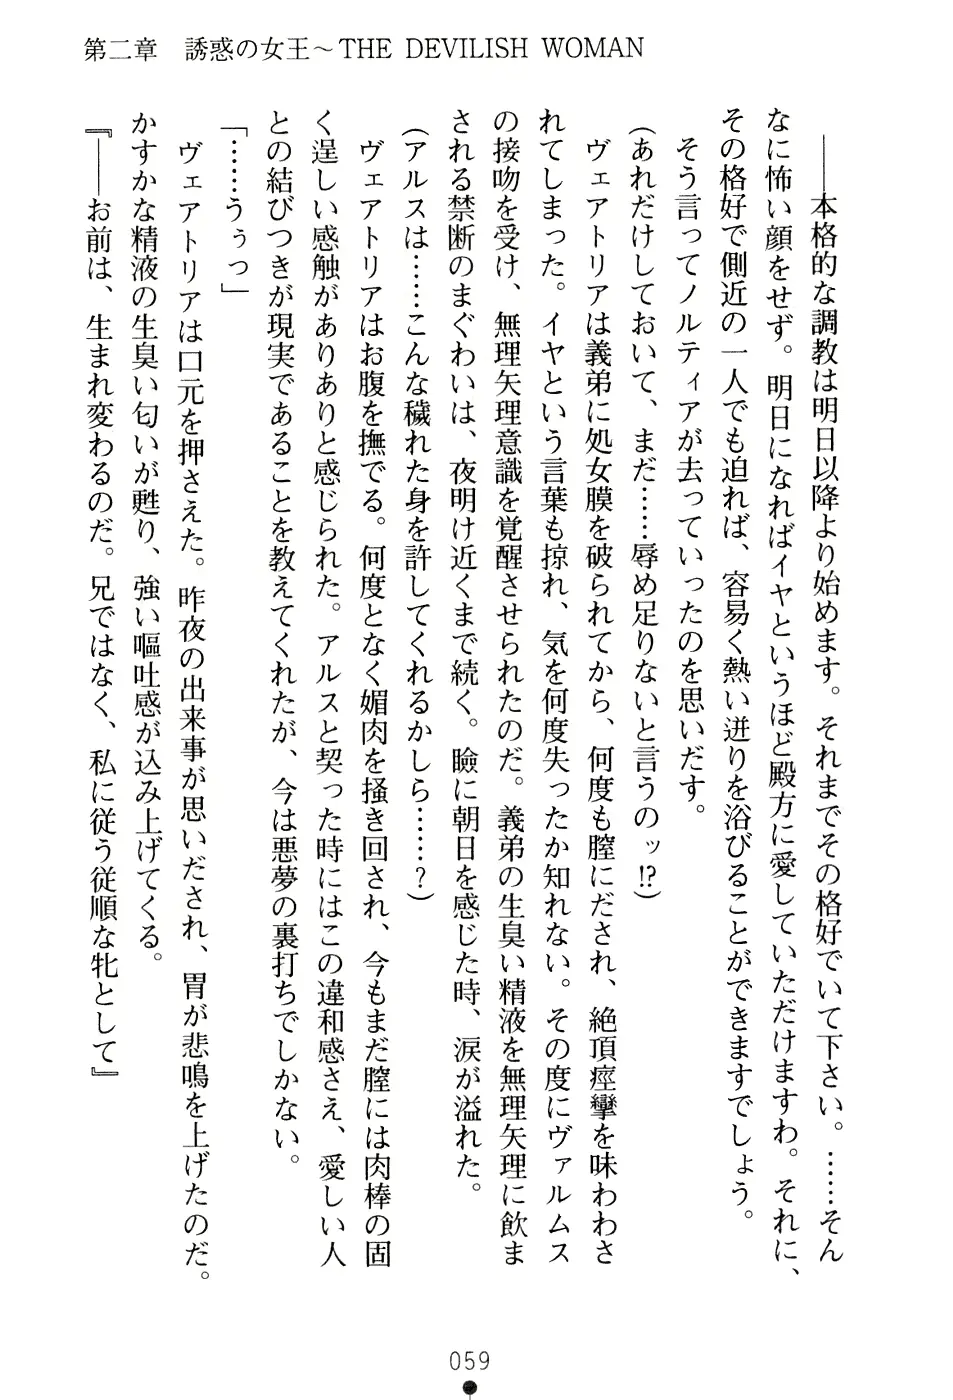 第二章　誘惑の女王～THE DEVILISH WOMAN
――本格的な調教は明日以降より始めます。それまでその格好でいて下さい。……そん
なに怖い顔をせず。明日になればイヤというほど殿方に愛していただけますわ。それに、
その格好で側近の一人でも迫れば、容易く熱い迸りを浴びることができますでしょう。
そう言ってノルティアが去っていったのを思いだす。
（あれだけしておいて、まだ……辱め足りないと言うのッ!?）
ヴェアトリアは義弟に処女膜を破られてから、何度も膣にだされ、絶頂痙攣を味わわさ
れてしまった。イヤという言葉も掠れ、気を何度失ったか知れない。その度にヴァルムス
の接吻を受け、無理矢理意識を覚醒させられたのだ。義弟の生臭い精液を無理矢理に飲ま
される禁断のまぐわいは、夜明け近くまで続く。瞼に朝日を感じた時、涙が溢れた。
（アルスは……こんな穢れた身を許してくれるかしら……？）
ヴェアトリアはお腹を撫でる。何度となく媚肉を掻き回され、今もまだ膣には肉棒の固
く逞しい感触がありありと感じられた。アルスと契った時にはこの違和感さえ、愛しい人
との結びつきが現実であることを教えてくれたが、今は悪夢の裏打ちでしかない。
「……うぅっ」
ヴェアトリアは口元を押さえた。昨夜の出来事が思いだされ、胃が悲鳴を上げたのだ。
かすかな精液の生臭い匂いが甦り、強い嘔吐感が込み上げてくる。
『――お前は、生まれ変わるのだ。兄ではなく、私に従う従順な牝として』
059